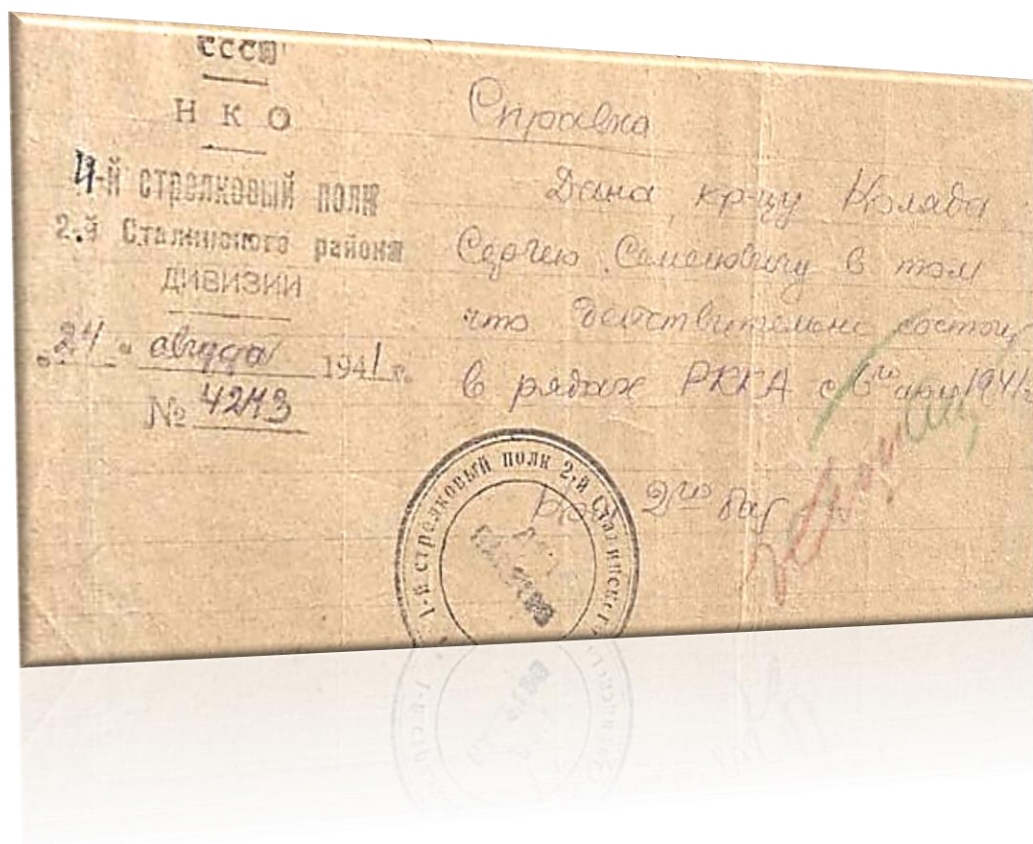 СССР
НКО
-й стрелковый полк
2-й Сталинского района
ДИВИЗИИ
„24“ августа 1941 г.
№ 4213
Справка
Дана кр-цу Коляда
Сергею Семеновичу в том
что действительно состоит
в рядах РККА с 6го 1941
2го
1-й стрелковый полк 2-й Сталинско